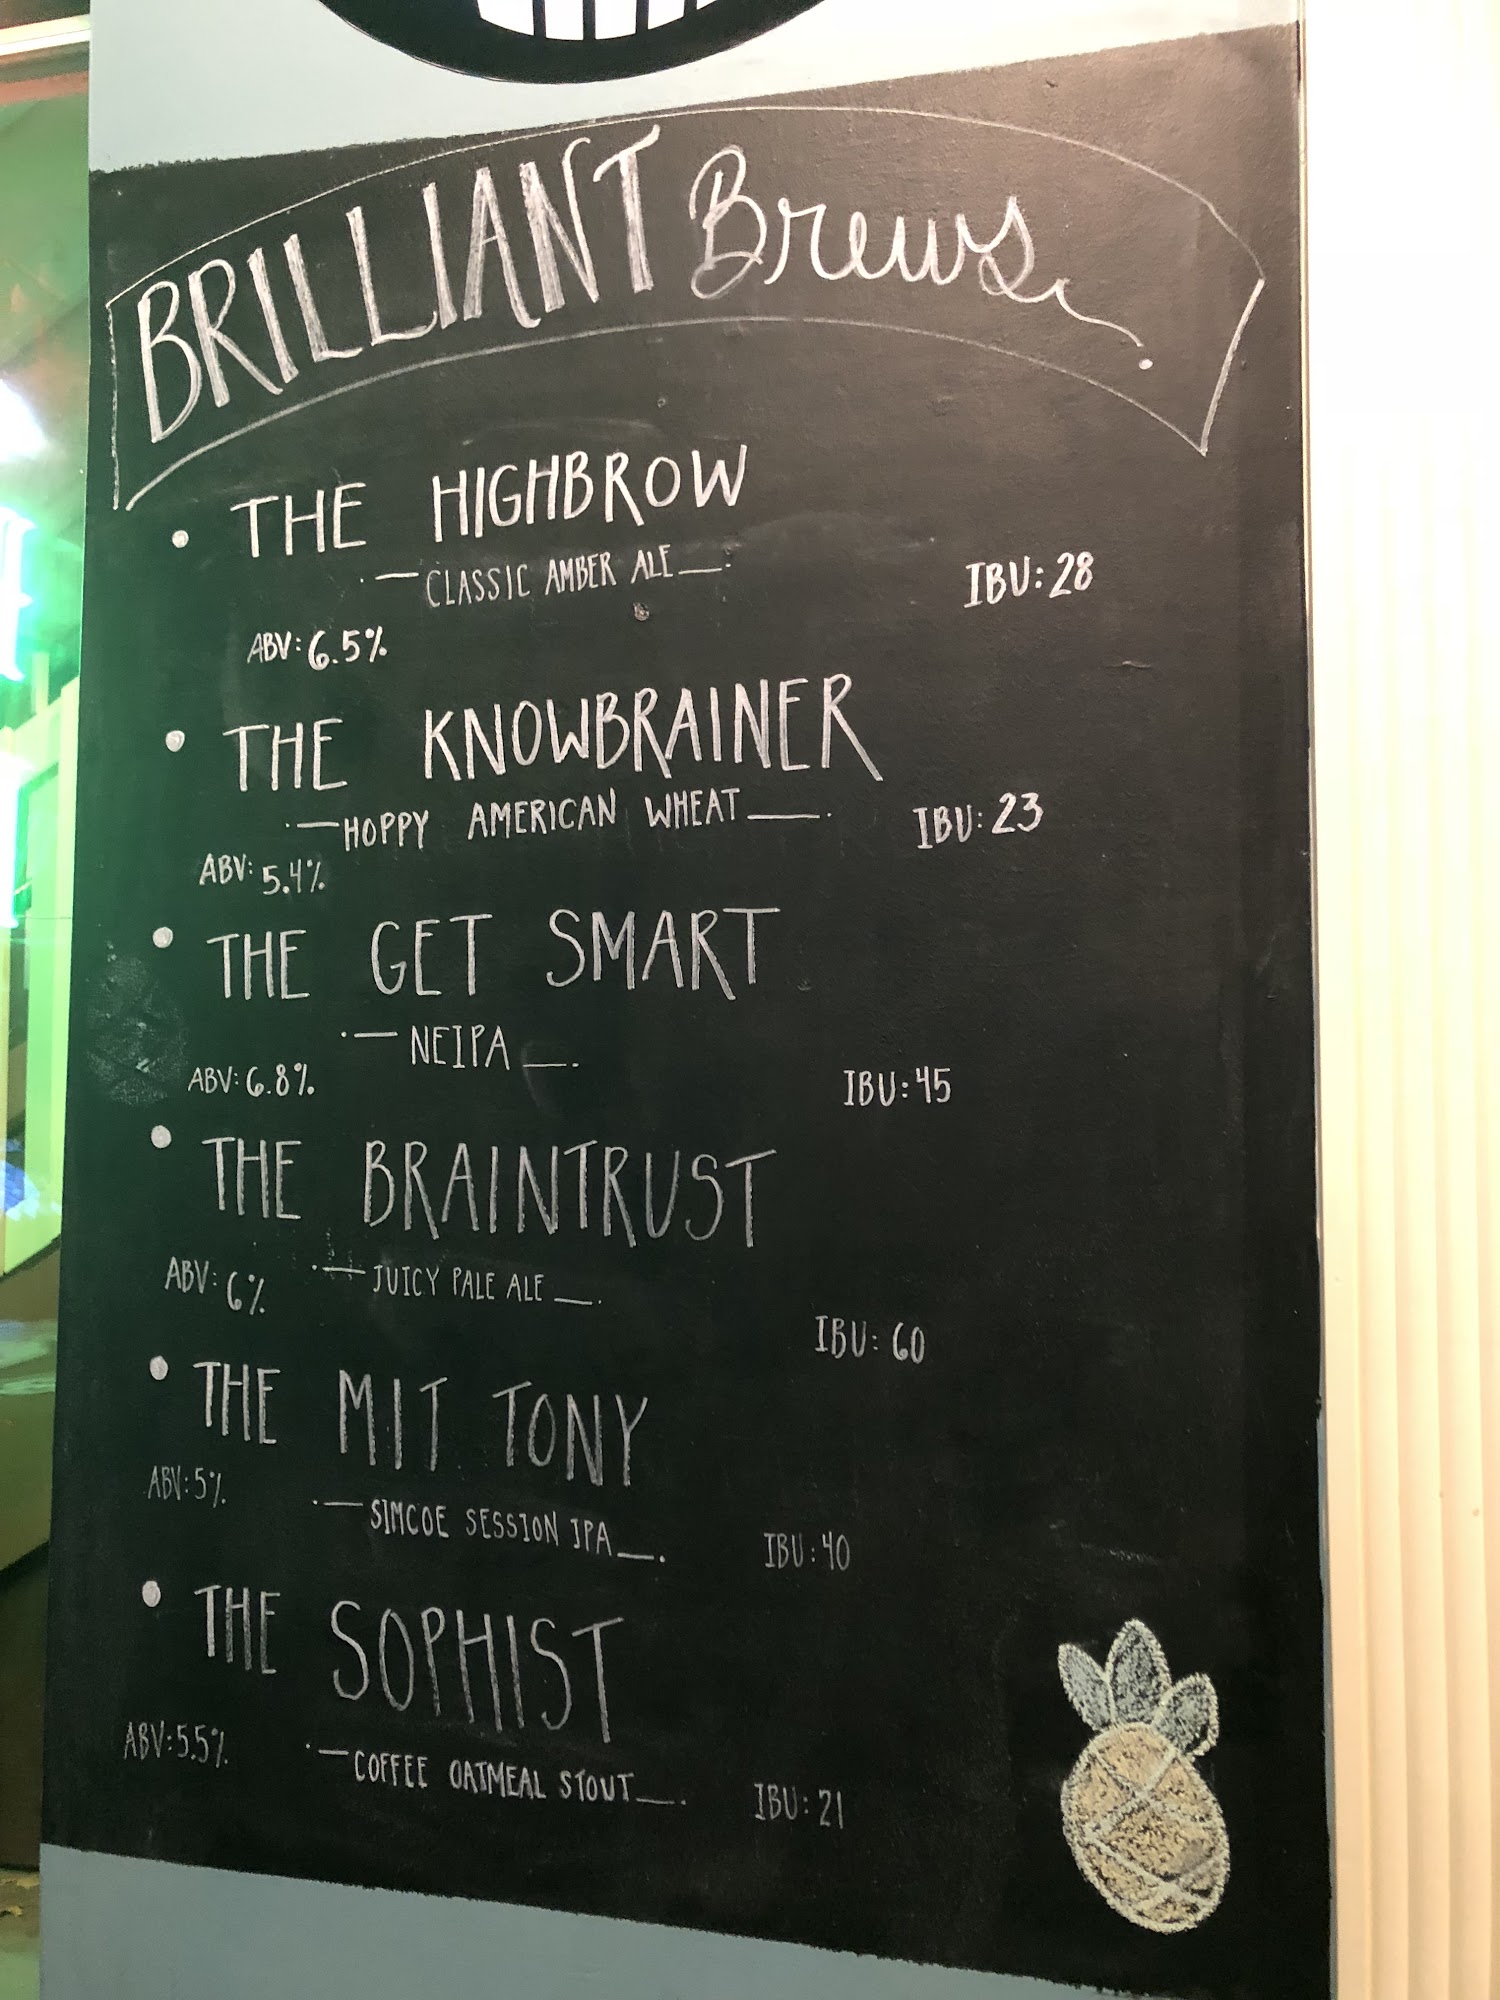 BRILLIANT Brews
• THE HIGHBROW
CLASSIC AMBER ALE
IBU: 28
ABV: 6.5%
• THE KNOWBRAINER
HOPPY AMERICAN WHEAT
IBU: 23
ABV: 5.4%
• THE GET SMART
NEIPA
ABV: 6.8%
IBU: 45
• THE BRAINTRUST
ABV: 6%
JUICY PALE ALE
IBU: 60
• THE MIT TONY
ABV: 5%
SIMCOE SESSION IPA
IBU: 40
• THE SOPHIST
ABV: 5.5%
COFFEE OATMEAL STOUT
IBU: 21